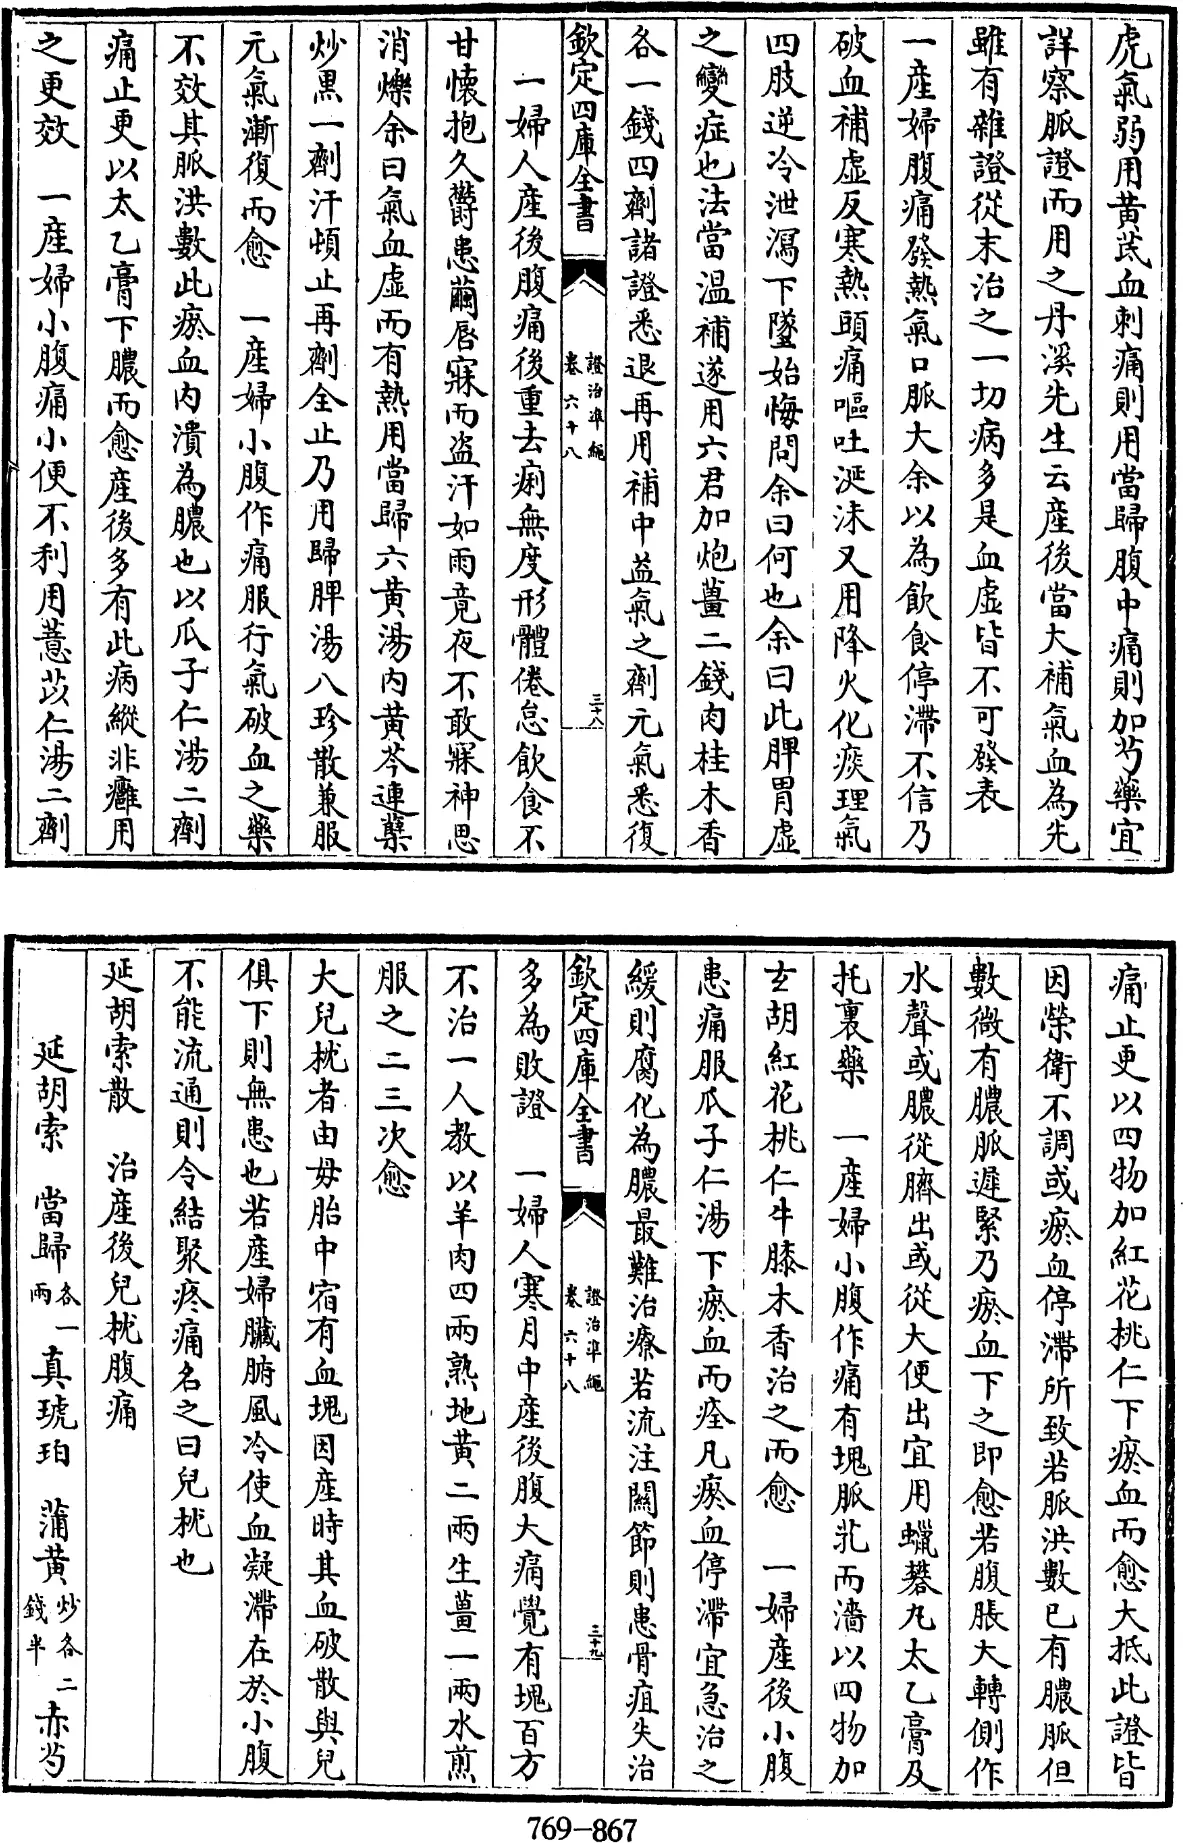 虎氣弱用黄茋血刺痛則用當歸腹中痛則加芍藥宜
詳察脈證而用之丹溪先生云産後當大補氣血為先
雖有雜證從末治之一切病多是血虛皆不可發表
一産婦腹痛發熱氣口脈大余以為飲食停滯不信乃
破血補虛反寒熱頭痛嘔吐涎沫又用降火化痰理氣
四肢逆冷泄瀉下墜始悔問余曰何也余曰此脾胃虛
之變症也法當温補遂用六君加炮薑二錢肉桂木香
各一錢四劑諸證悉退再用補中益氣之劑元氣悉復
欽定四庫全書
證治準繩
卷六十八
三十八
一婦人産後腹痛後重去痢無度形體倦怠飲食不
甘懷抱久鬱患繭唇寐而盗汗如雨竟夜不敢寐神思
消爍余曰氣血虛而有熱用當歸六黄湯内黄芩連蘗
炒黒一劑汗頓止再劑全止乃用歸脾湯八珍散兼服
元氣漸復而愈　一産婦小腹作痛服行氣破血之藥
不效其脈洪數此瘀血内潰為膿也以瓜子仁湯二劑
痛止更以太乙膏下膿而愈産後多有此病縱非癰用
之更效　一産婦小腹痛小便不利用薏苡仁湯二劑
痛止更以四物加紅花桃仁下瘀血而愈大抵此證皆
因榮衛不調或瘀血停滯所致若脈洪數已有膿脈但
數微有膿脈遲緊乃瘀血下之即愈若腹脹大轉側作
水聲或膿從臍出或從大便出宜用蠟礬丸太乙膏及
托裏藥　一産婦小腹作痛有塊脈芤而濇以四物加
玄胡紅花桃仁牛膝木香治之而愈　一婦産後小腹
患痛服瓜子仁湯下瘀血而痊凡瘀血停滯宜急治之
緩則腐化為膿最難治療若流注關節則患骨疽失治
欽定四庫全書
證治準繩
卷六十八
三十九
多為敗證　一婦人寒月中産後腹大痛覺有塊百方
不治一人教以羊肉四兩熟地黄二兩生薑一兩水煎
服之二三次愈
大兒枕者由母胎中宿有血塊因産時其血破散與兒
俱下則無患也若産婦臟腑風冷使血凝滯在於小腹
不能流通則令結聚疼痛名之曰兒枕也
延胡索散　治産後兒枕腹痛
延胡索　當歸各一兩真琥珀　蒲黄炒各二錢半赤芍
769-867